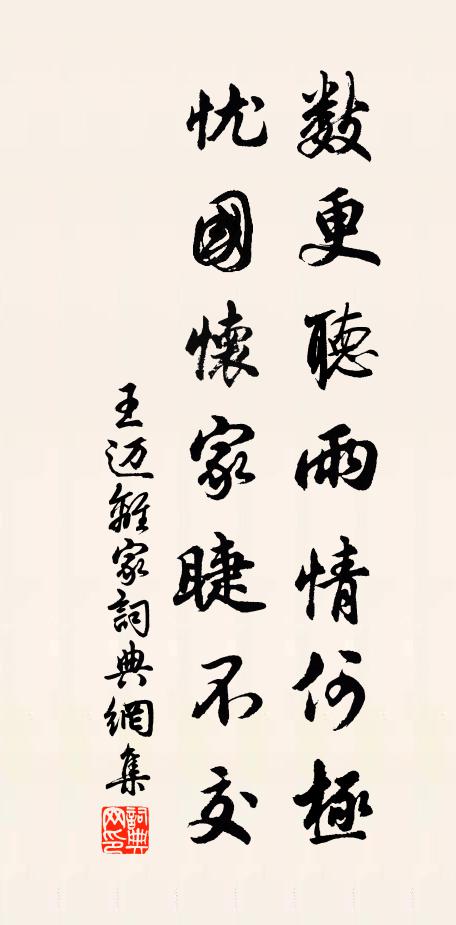 數更聽雨情何極
忧國懷家睫不交
王迈離家詞典網集
詞典网印